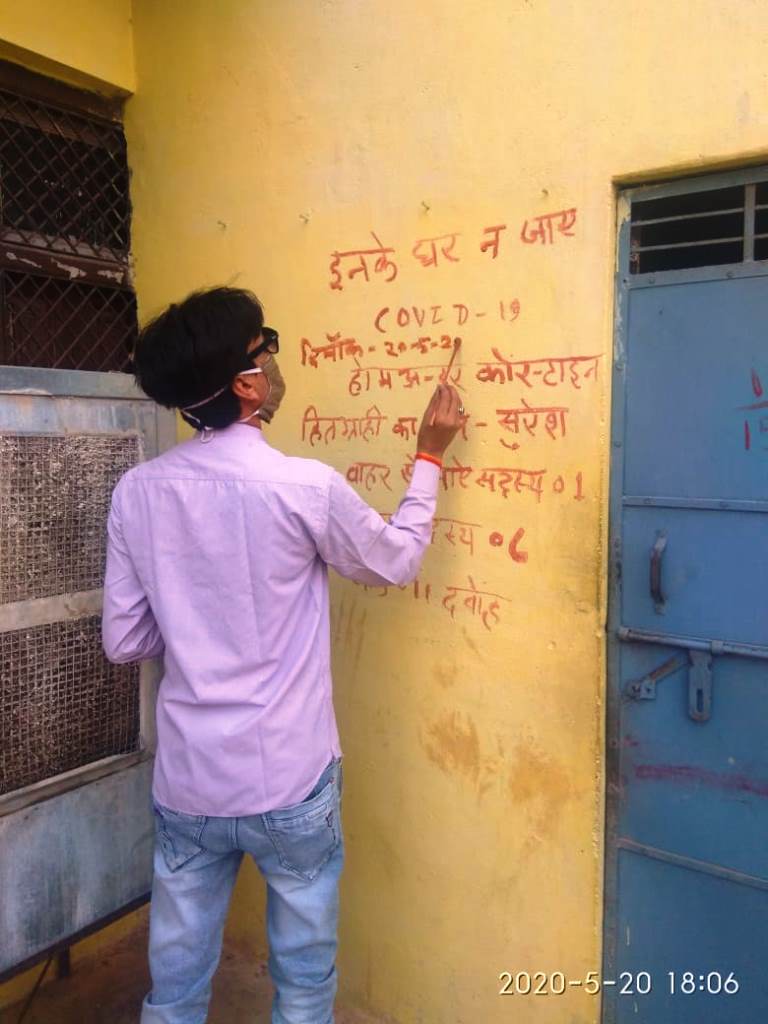 इनके घर न जाए
COVID-19
दिनाँक - 20-5-2
होम अन्डर कोरन्टाइन
हितग्राही का - सुरेश
वाहर से आऐ सदस्य 01
सदस्य 06
दबोह
2020-5-20 18:06